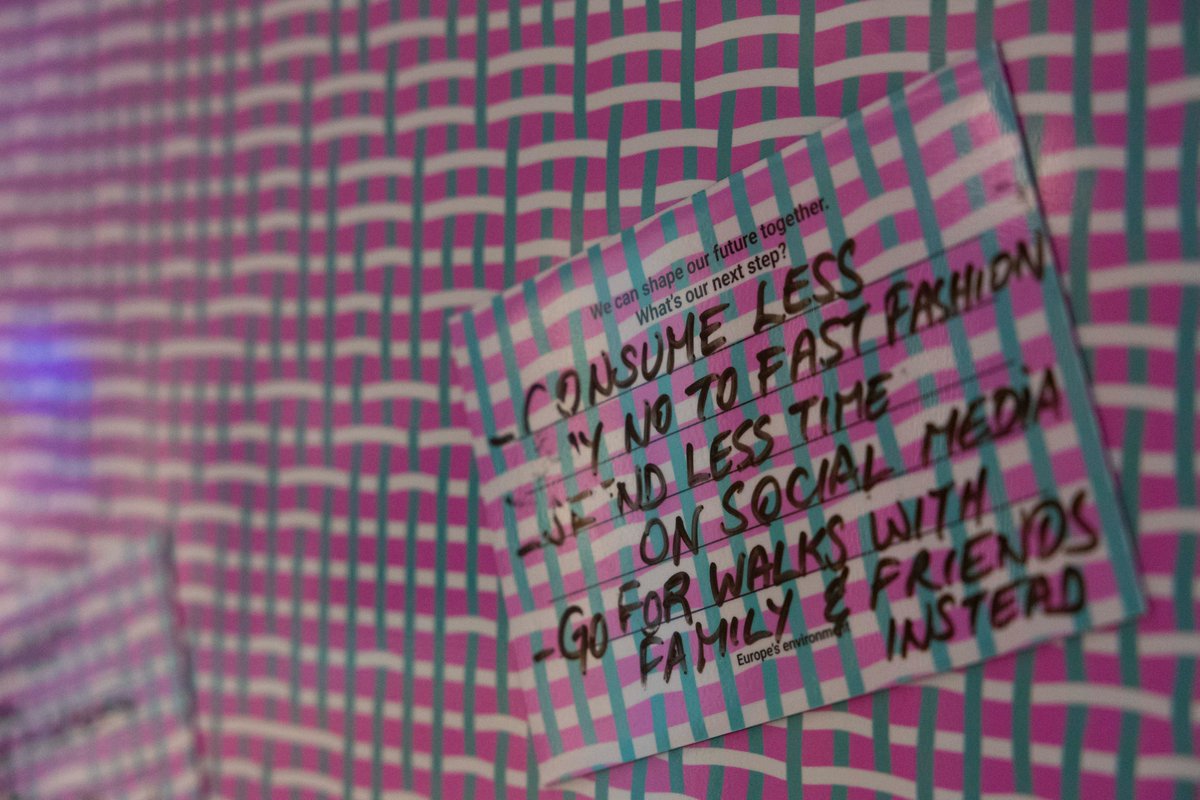 We can shape our future together.
What's our next step?
- CONSUME LESS
NO TO FAST FASHION
- LESS TIME
ON SOCIAL MEDIA
- GO FOR WALKS WITH
FAMILY & FRIENDS
INSTEAD
Europe's environment